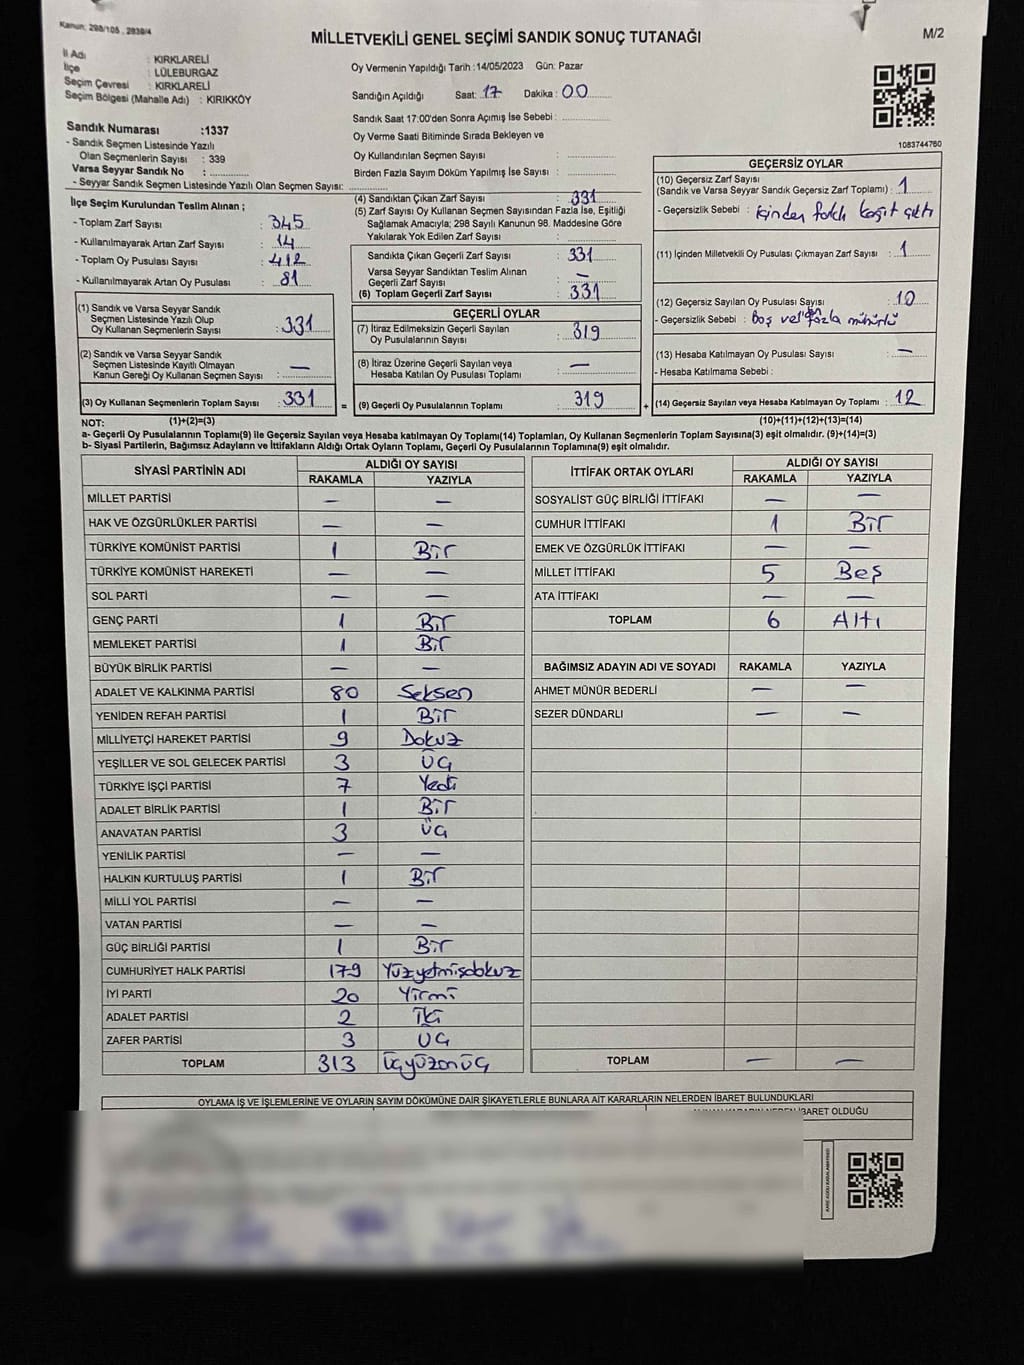 Kanun: 298/105 , 2839/4
MİLLETVEKİLİ GENEL SEÇİMİ SANDIK SONUÇ TUTANAĞI
M/2
İl Adı : KIRKLARELİ
İlçe : LÜLEBURGAZ
Seçim Çevresi : KIRKLARELİ
Seçim Bölgesi (Mahalle Adı) : KIRIKKÖY
Sandık Numarası :1337
- Sandık Seçmen Listesinde Yazılı
Olan Seçmenlerin Sayısı : 339
Varsa Seyyar Sandık No :
- Seyyar Sandık Seçmen Listesinde Yazılı Olan Seçmen Sayısı:
Oy Vermenin Yapıldığı Tarih :14/05/2023 Gün: Pazar
Sandığın Açıldığı Saat: 17 Dakika : 00
Sandık Saat 17:00'den Sonra Açımış İse Sebebi :
Oy Verme Saati Bitiminde Sırada Bekleyen ve
Oy Kullandırılan Seçmen Sayısı :
Birden Fazla Sayım Döküm Yapılmış İse Sayısı :
1083744760
İlçe Seçim Kurulundan Teslim Alınan ;
- Toplam Zarf Sayısı : 345
- Kullanılmayarak Artan Zarf Sayısı : 14
- Toplam Oy Pusulası Sayısı : 412
- Kullanılmayarak Artan Oy Pusulası : 81
(1) Sandık ve Varsa Seyyar Sandık
Seçmen Listesinde Yazılı Olup
Oy Kullanan Seçmenlerin Sayısı : 331
(2) Sandık ve Varsa Seyyar Sandık
Seçmen Listesinde Kayıtlı Olmayan
Kanun Gereği Oy Kullanan Seçmen Sayısı : —
(3) Oy Kullanan Seçmenlerin Toplam Sayısı : 331
(4) Sandıktan Çıkan Zarf Sayısı : 331
(5) Zarf Sayısı Oy Kullanan Seçmen Sayısından Fazla İse, Eşitliği
Sağlamak Amacıyla; 298 Sayılı Kanunun 98. Maddesine Göre
Yakılarak Yok Edilen Zarf Sayısı :
Sandıkta Çıkan Geçerli Zarf Sayısı : 331
Varsa Seyyar Sandıktan Teslim Alınan
Geçerli Zarf Sayısı : —
(6) Toplam Geçerli Zarf Sayısı : 331
GEÇERLİ OYLAR
(7) İtiraz Edilmeksizin Geçerli Sayılan
Oy Pusulalarının Sayısı : 319
(8) İtiraz Üzerine Geçerli Sayılan veya
Hesaba Katılan Oy Pusulası Toplamı : —
= (9) Geçerli Oy Pusulalarının Toplamı : 319
GEÇERSİZ OYLAR
(10) Geçersiz Zarf Sayısı
(Sandık ve Varsa Seyyar Sandık Geçersiz Zarf Toplamı) : 1
- Geçersizlik Sebebi : içinden farklı kağıt çıktı
(11) İçinden Milletvekili Oy Pusulası Çıkmayan Zarf Sayısı : 1
(12) Geçersiz Sayılan Oy Pusulası Sayısı : 10
- Geçersizlik Sebebi : Boş fazla mühürlü
(13) Hesaba Katılmayan Oy Pusulası Sayısı : —
- Hesaba Katılmama Sebebi :
+ (14) Geçersiz Sayılan veya Hesaba Katılmayan Oy Toplamı : 12
NOT: (1)+(2)=(3) (10)+(11)+(12)+(13)=(14)
a- Geçerli Oy Pusulalarının Toplamı(9) ile Geçersiz Sayılan veya Hesaba katılmayan Oy Toplamı(14) Toplamları, Oy Kullanan Seçmenlerin Toplam Sayısına(3) eşit olmalıdır. (9)+(14)=(3)
b- Siyasi Partilerin, Bağımsız Adayların ve İttifakların Aldığı Ortak Oyların Toplamı, Geçerli Oy Pusulalarının Toplamına(9) eşit olmalıdır.
SİYASİ PARTİNİN ADI ALDIĞI OY SAYISI
RAKAMLA YAZIYLA
MİLLET PARTİSİ — —
HAK VE ÖZGÜRLÜKLER PARTİSİ — —
TÜRKİYE KOMÜNİST PARTİSİ 1 Bir
TÜRKİYE KOMÜNİST HAREKETİ — —
SOL PARTİ — —
GENÇ PARTİ 1 Bir
MEMLEKET PARTİSİ 1 Bir
BÜYÜK BİRLİK PARTİSİ — —
ADALET VE KALKINMA PARTİSİ 80 Seksen
YENİDEN REFAH PARTİSİ 1 Bir
MİLLİYETÇİ HAREKET PARTİSİ 9 Dokuz
YEŞİLLER VE SOL GELECEK PARTİSİ 3 Üç
TÜRKİYE İŞÇİ PARTİSİ 7 Yedi
ADALET BİRLİK PARTİSİ 1 Bir
ANAVATAN PARTİSİ 3 Üç
YENİLİK PARTİSİ — —
HALKIN KURTULUŞ PARTİSİ 1 Bir
MİLLİ YOL PARTİSİ — —
VATAN PARTİSİ — —
GÜÇ BİRLİĞİ PARTİSİ 1 Bir
CUMHURİYET HALK PARTİSİ 179 Yüzyetmişdokuz
İYİ PARTİ 20 Yirmi
ADALET PARTİSİ 2 İki
ZAFER PARTİSİ 3 Üç
TOPLAM 313 Üçyüzonüç
İTTİFAK ORTAK OYLARI ALDIĞI OY SAYISI
RAKAMLA YAZIYLA
SOSYALİST GÜÇ BİRLİĞİ İTTİFAKI — —
CUMHUR İTTİFAKI 1 Bir
EMEK VE ÖZGÜRLÜK İTTİFAKI — —
MİLLET İTTİFAKI 5 Beş
ATA İTTİFAKI — —
TOPLAM 6 Altı
BAĞIMSIZ ADAYIN ADI VE SOYADI RAKAMLA YAZIYLA
AHMET MÜNÜR BEDERLİ — —
SEZER DÜNDARLI — —
TOPLAM — —
OYLAMA İŞ VE İŞLEMLERİNE VE OYLARIN SAYIM DÖKÜMÜNE DAİR ŞİKAYETLERLE BUNLARA AİT KARARLARIN NELERDEN İBARET BULUNDUKLARI
İBARET OLDUĞU